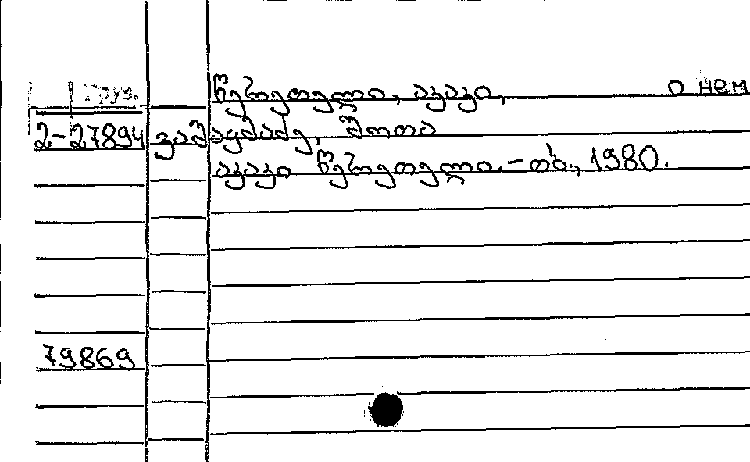 Груз. წერეთელი, აკაკი, о нем
2-27894 ვაშაყმაძე, შოთა
აკაკი წერეთელი.–თბ., 1980.
79869